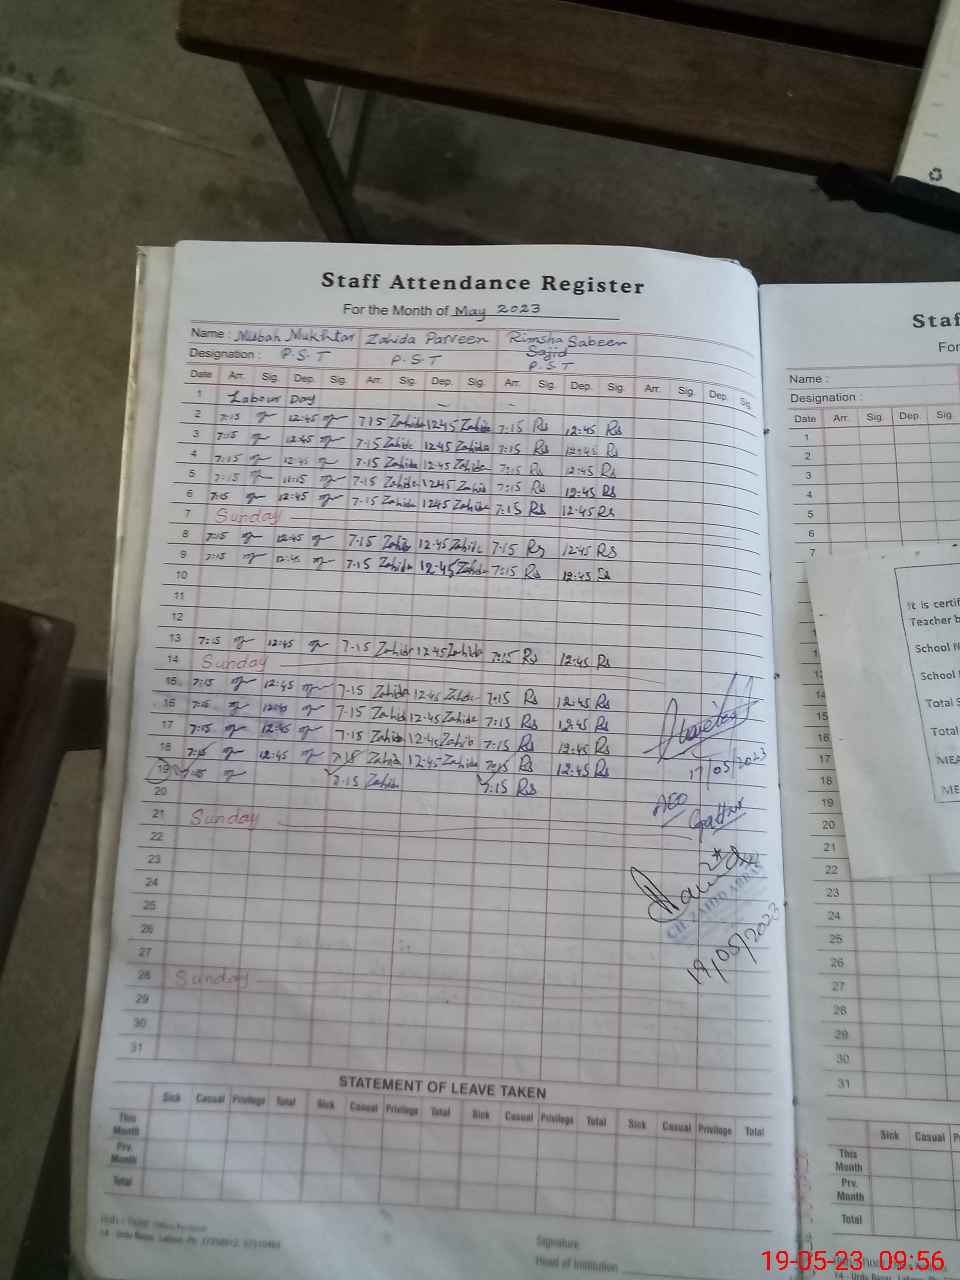 Staff Attendance Register
For the Month of May 2023
Name : Misbah Mukhtar Zahida Parveen Rimsha Sabeen Sajid
Designation : P.S.T P.S.T P.S.T
Date Arr. Sig. Dep. Sig. Arr. Sig. Dep. Sig. Arr. Sig. Dep. Sig. Arr. Sig. Dep. Sig.
1 Labour Day
2 7:15 12:45 7.15 Zahida 12.45 Zahida 7:15 Rs 12:45 Rs
3 7:15 12:45 7.15 Zahida 12.45 Zahida 7:15 Rs 12:45 Rs
4 7:15 12:45 7.15 Zahida 12.45 Zahida 7:15 Rs 12:45 Rs
5 7:15 7.15 Zahida 12.45 Zahida 7:15 Rs 12:45 Rs
6 7:15 12:45 7.15 Zahida 12.45 Zahida 7:15 Rs 12:45 Rs
7 Sunday
8 7:15 12:45 7.15 Zahida 12.45 Zahida 7:15 Rs 12:45 Rs
9 7:15 12:45 7.15 Zahida 12.45 Zahida 7:15 Rs 12:45 Rs
10
11
12
13 7:15 12:45 7.15 Zahida 12.45 Zahida 7:15 Rs 12:45 Rs
14 Sunday
15 7:15 12:45 7.15 Zahida 12.45 Zahida 7:15 Rs 12:45 Rs
16 7:15 12:45 7.15 Zahida 12.45 Zahida 7:15 Rs 12:45 Rs
17 7:15 12:45 7.15 Zahida 12.45 Zahida 7:15 Rs 12:45 Rs
18 7:15 12:45 7.15 Zahida 12.45 Zahida 7:15 Rs 12:45 Rs
19 7:15 7.15 Zahida 7:15 Rs
20
21 Sunday
22
23
24
25
26
27
28 Sunday
29
30
31
17/05/2023
AEO
19/05/2023
STATEMENT OF LEAVE TAKEN
Sick Casual Privilege Total Sick Casual Privilege Total Sick Casual Privilege Total Sick Casual Privilege Total
This Month
Prv. Month
Total
Signature
Head of Institution
Staf
For
Name :
Designation :
Date Arr. Sig. Dep. Sig.
1
2
3
4
5
6
7
It is certif
Teacher b
School N
School
Total S
Total
MEA
14
15
16
17
18
19
20
21
22
23
24
25
26
27
28
29
30
31
Sick Casual
This Month
Prv. Month
Total
19-05-23 09:56